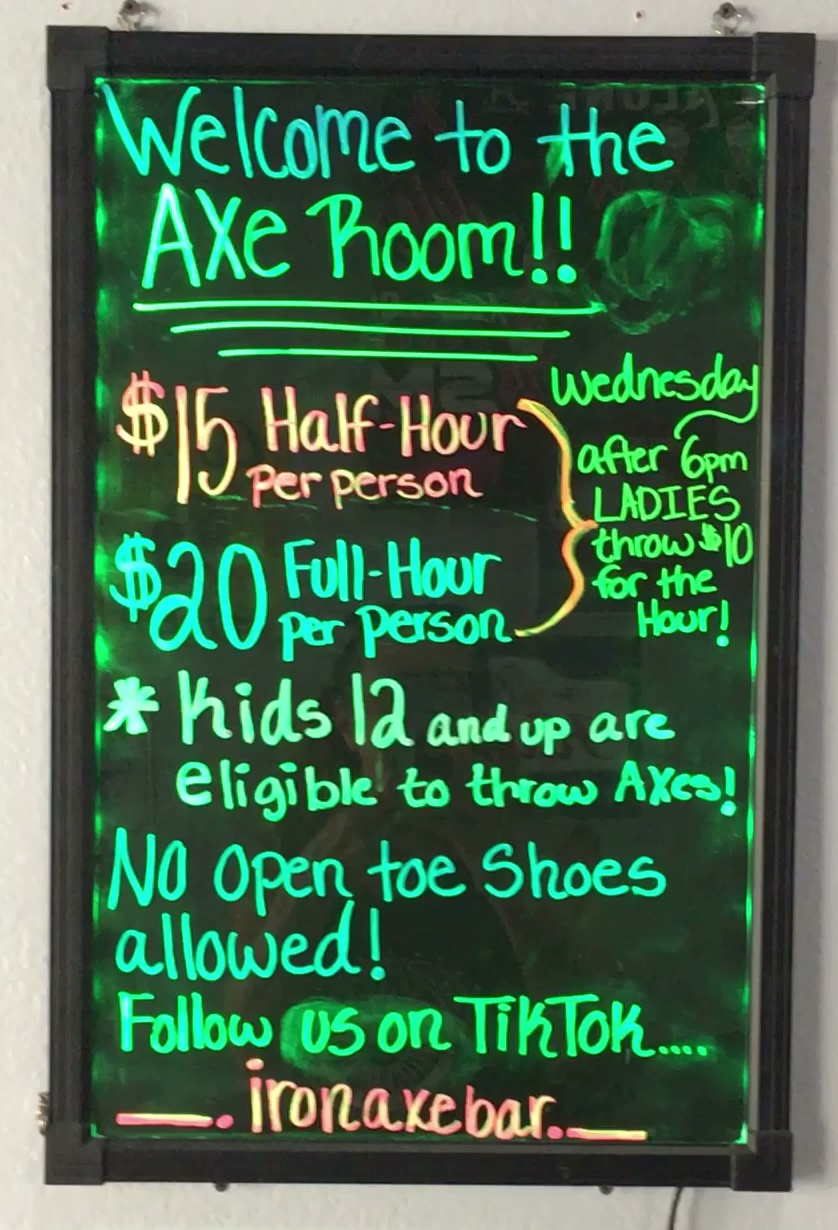 Welcome to the
AXe Room!!
$15 Half-Hour
per person
$20 Full-Hour
per person
Wednesday
after 6pm
LADIES
throw $10
for the
Hour!
* Kids 12 and up are
eligible to throw Axes!
No open toe shoes
allowed!
Follow us on TikTok....
__. ironaxebar.__